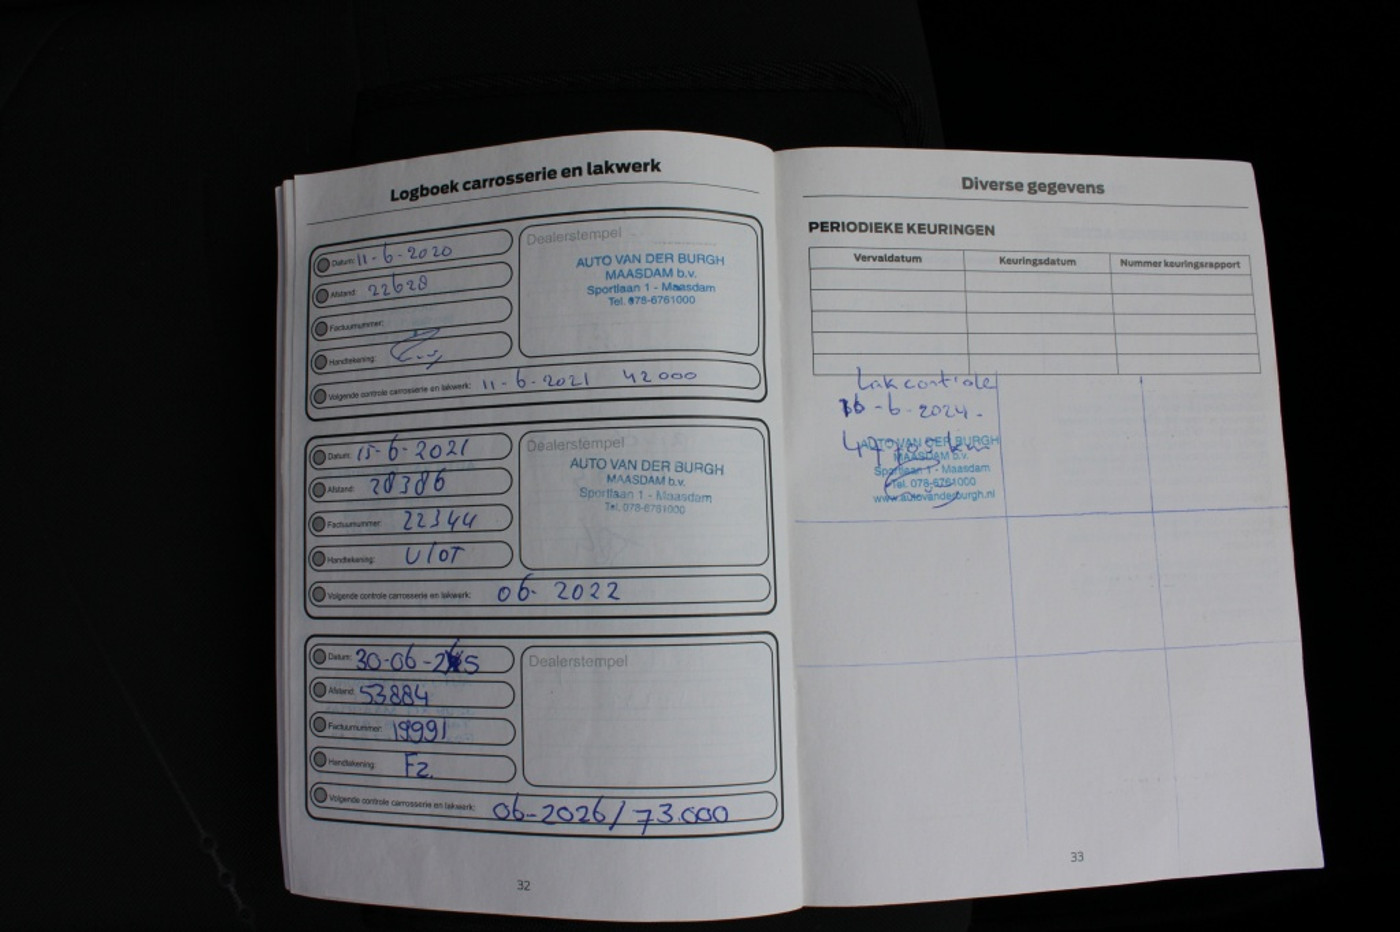 Logboek carrosserie en lakwerk
Datum: 11-6-2020
Afstand: 22628
Factuurnummer:
Handtekening:
Volgende controle carrosserie en lakwerk: 11-6-2021 42000
Dealerstempel
AUTO VAN DER BURGH
MAASDAM b.v.
Sportlaan 1 - Maasdam
Tel. 078-6761000
Datum: 15-6-2021
Afstand: 28386
Factuurnummer: 22344
Handtekening: Vlot
Volgende controle carrosserie en lakwerk: 06-2022
Dealerstempel
AUTO VAN DER BURGH
MAASDAM b.v.
Sportlaan 1 - Maasdam
Tel. 078-6761000
Datum: 30-06-25
Afstand: 53884
Factuurnummer: 19991
Handtekening: Fz.
Volgende controle carrosserie en lakwerk: 06-2026/73.000
Dealerstempel
32
Diverse gegevens
PERIODIEKE KEURINGEN
Vervaldatum Keuringsdatum Nummer keuringsrapport
Lakcontrole
-6-2024-
km
AUTO VAN DER BURGH
MAASDAM b.v.
Sportlaan 1 - Maasdam
Tel. 078-6761000
www.autovanderburgh.nl
33